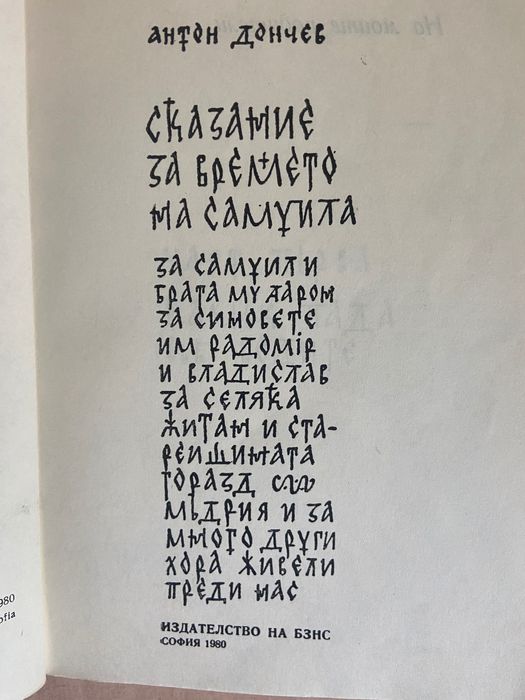 антон дончев
сказание
за времето
на самуила
за самуил и
брата му арон
за синовете
им радомір
и владислав
за селяка
житан и ста-
рейшината
горазд
мъдрия и за
много други
хора живели
преди нас
ИЗДАТЕЛСТВО НА БЗНС
СОФИЯ 1980
980
ofia